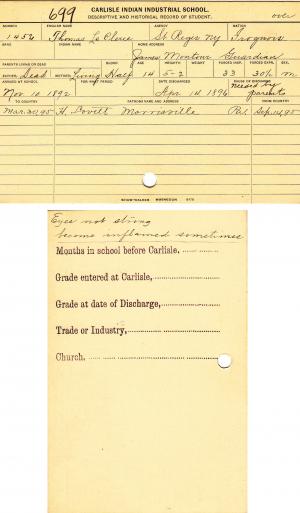 699
CARLISLE INDIAN INDUSTRIAL SCHOOL.
DESCRIPTIVE AND HISTORICAL RECORD OF STUDENT.
over
NUMBER ENGLISH NAME AGENCY NATION
1452 Thomas La Clere St Regis Ny Iroquois
BAND INDIAN NAME HOME ADDRESS
James Montour Guardian
PARENTS LIVING OR DEAD BLOOD AGE HEIGHT WEIGHT FORCED INSP. FORCED EXPR. SEX.
FATHER Dead MOTHER Living Half 14 5-2 33 30½ m
ARRIVED AT SCHOOL FOR WHAT PERIOD DATE DISCHARGED CAUSE OF DISCHARGE
Nov 10 1892 Apr 14 1896 by parents
TO COUNTRY PATRONS NAME AND ADDRESS FROM COUNTRY
Mar. 30, 95 H. Lovett Morrisville Pa. Sep. 14, 95
Eyes not strong
become inflamed sometimes
Months in school before Carlisle,
Grade entered at Carlisle,
Grade at date of Discharge,
Trade or Industry,
Church.